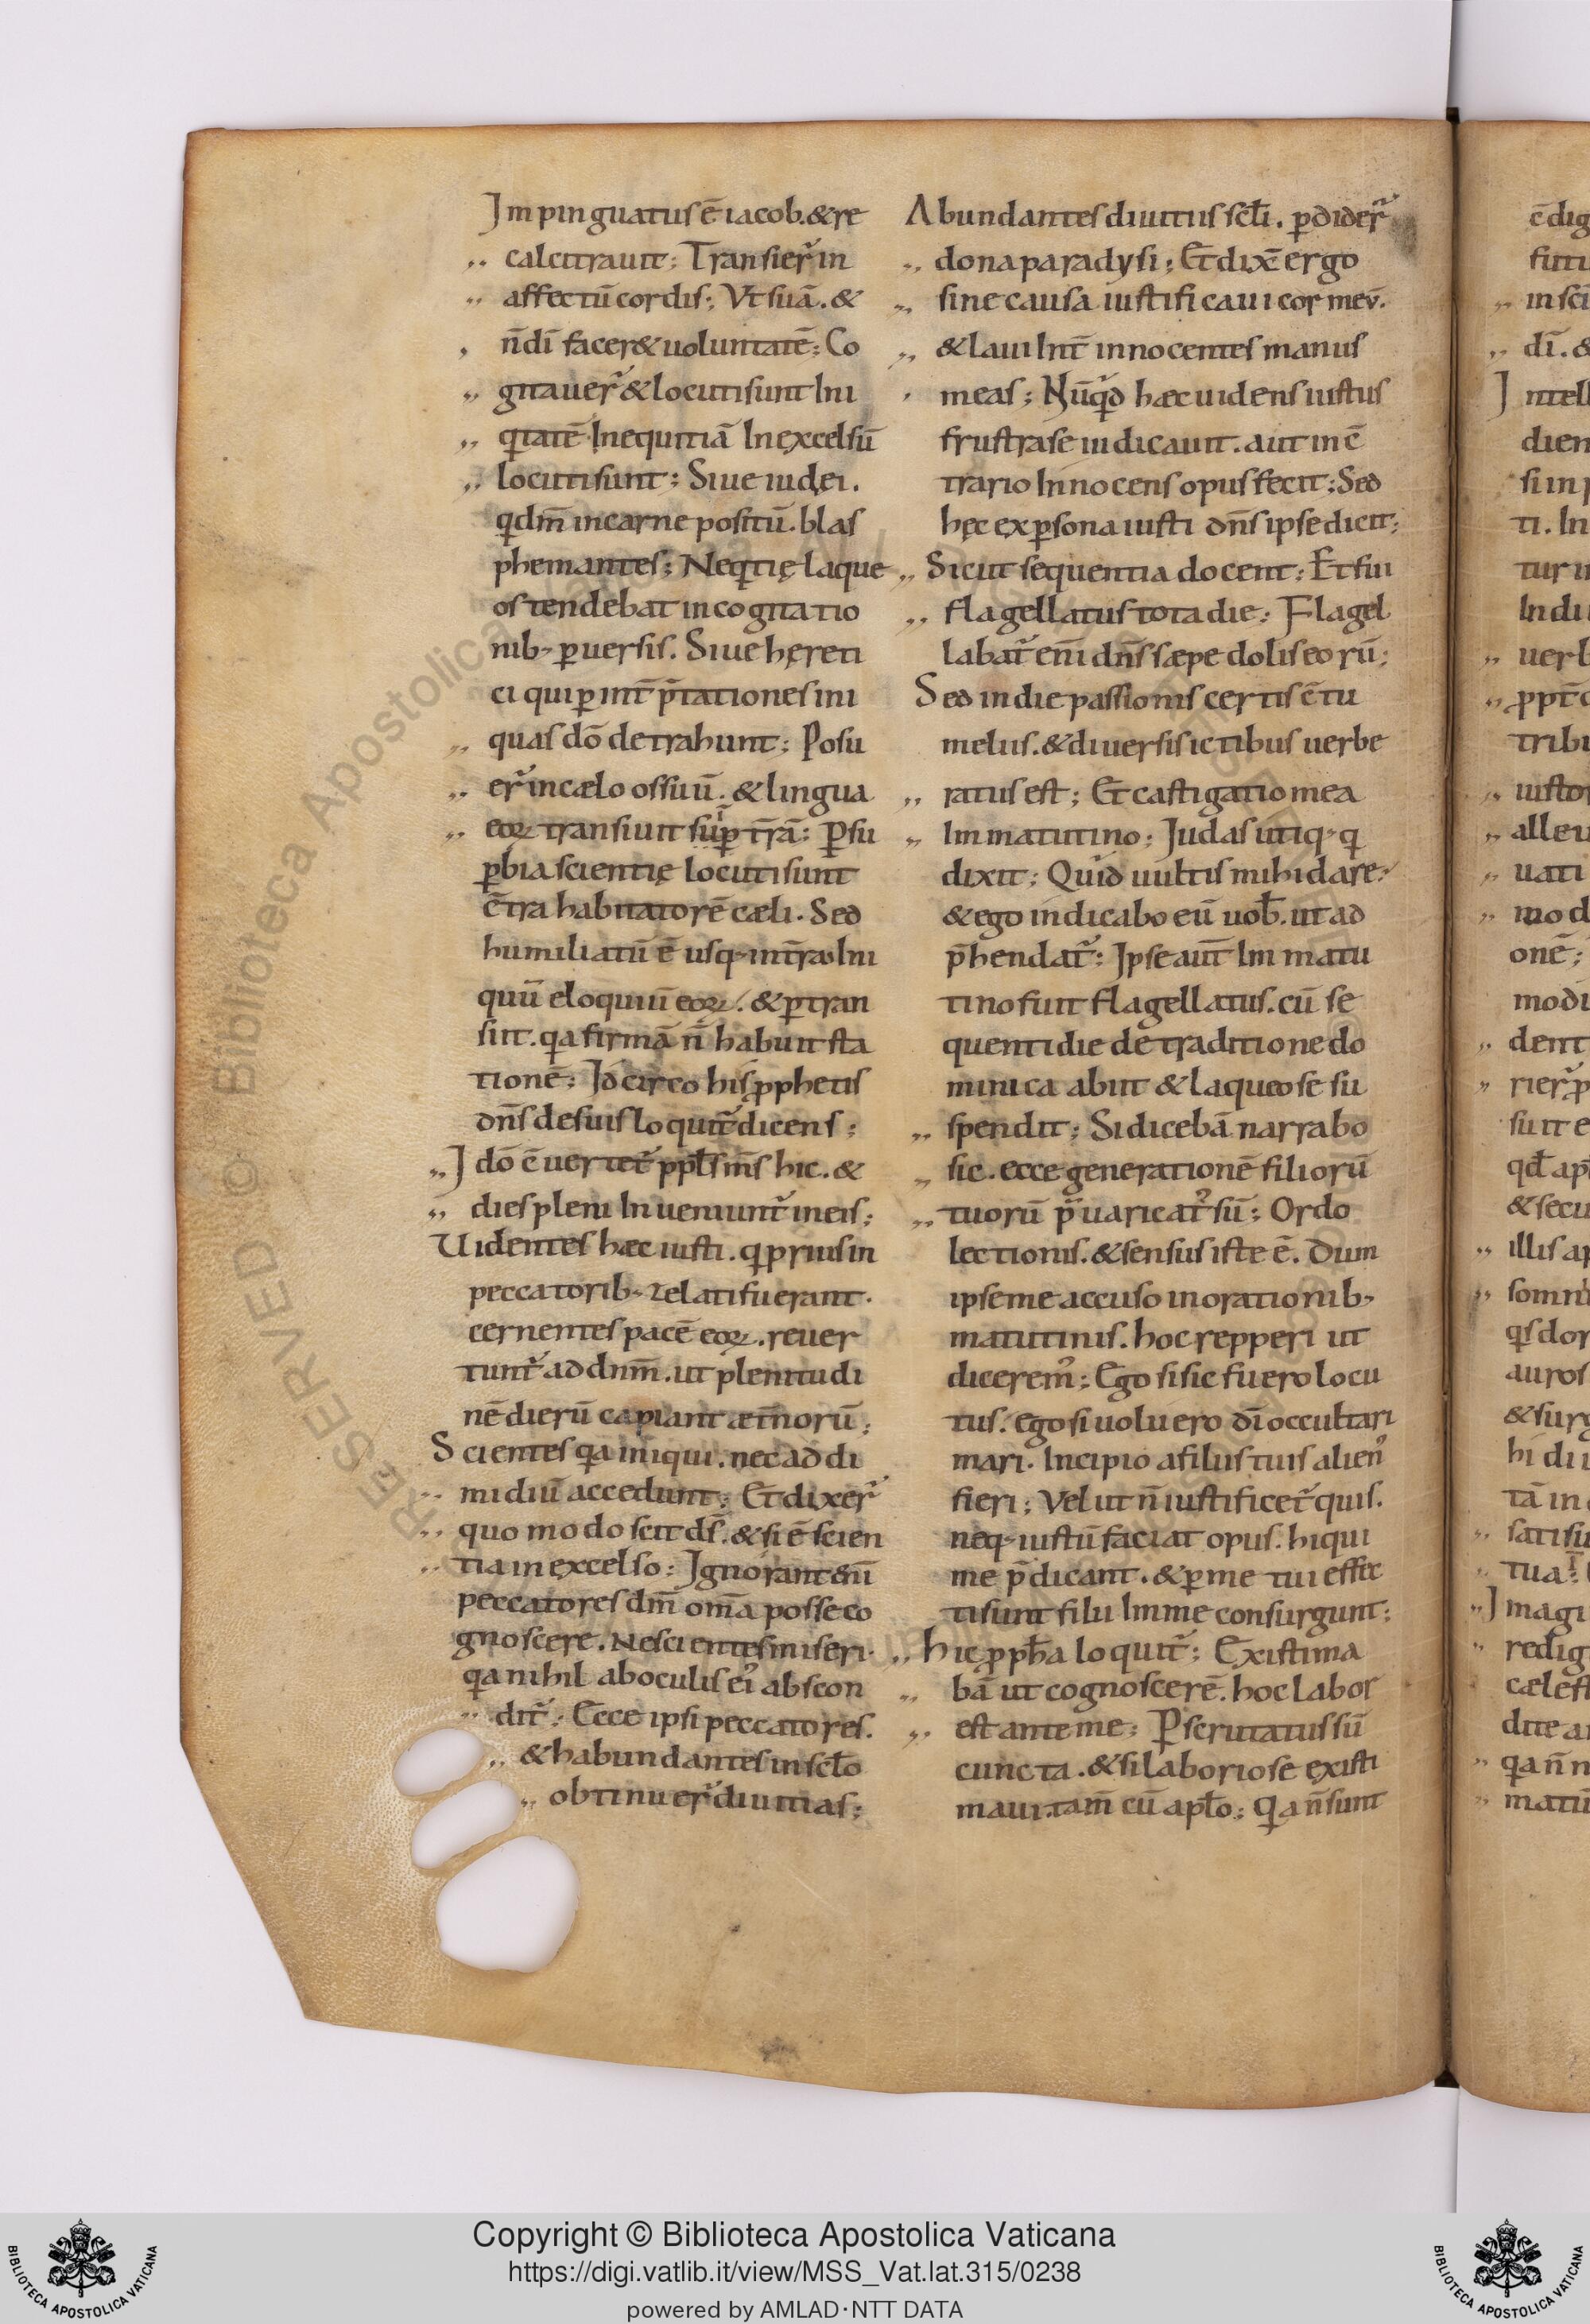 Impinguatus ē iacob. & re
calcitrauit; Transier̄ in
affectū cordis; Vt suā. &
n̄ dī facer& uoluntatē; Co
gitauer̄ & locuti sunt Ini
q̄tatē Inequitiā In excelsū
locuti sunt; Siue iudęi.
qdm̄ in carne positū. blas
phemantes; Neq̄tię laque
os tendebat in cognatio
nib; ꝑuersis. Siue hęreti
ci qui ꝑ int̄p̄tationes ini
quas dō detrahunt; Posu
er̄ in cælo os suū. & lingua
eoꝝ transiuit suꝑ t̄rā; Ꝑ su
ꝑbia scientię locuti sunt
c̄tra habitatorē cæli. Sed
humiliatū ē usq; int̄ra Ini
quū eloquiū eoꝝ. & ꝑtran
siit. qa firmā n̄ habuit sta
tionē; Idcirco his ꝓphetis
dn̄s de suis loquit̄ dicens;
Idō c̄uertet̄ ppl̄s m̄s hic. &
dies pleni Inueniunt̄ in eis;
Uidentes hæc iusti. q prius in
peccatorib; zelati fuerant.
cernentes pacē eoꝝ. reuer
tunt̄ ad dnm̄. ut plenitudi
nē dierū capiant æt̄norū;
Scientes qa iniqui. nec ad di
midiū accedunt; Et dixer̄
quomodo scit ds̄. & si ē scien
tia in excelso; Ignorant en̄i
peccatores dm̄ om̄a posse co
gnoscere. Nescientes miseri.
qa nihil ab oculis ei᾽ abscon
dit̄; Ecce ipsi peccatores.
& habundantes in scl̄o
obtinuer̄ diuitias;
Abundantes diuitiis scl̄i. ꝑdider̄
dona paradysi; Et dix̄ ergo
sine causa iustificaui cor meū.
& laui Int̄ innocentes manus
meas; Nūqd hæc uidens iustus
frustra se iudicauit. aut in c̄
trario Innocens opus fecit; Sed
hęc ex ꝑsona iusti dn̄s ipse dicit;
Sicut sequentia docent; Et fui
flagellatus tota die; Flagel
labat̄ en̄i dn̄s sæpe dolis eorū;
Sed in die passionis certis c̄tu
meliis. & diuersis ictibus uerbe
ratus est; Et castigatio mea
Im matutino; Iudas utiq; q
dixit; Quid uultis mihi dare.
& ego indicabo eū uob̄. ut ad
p̄hendat̄; Ipse aut̄ Im matu
tino fuit flagellatus. cū se
quenti die de traditione do
minica abiit & laqueo se su
spendit; Si dicebā narrabo
sic. ecce generationē filiorū
tuorū p̄uaricat᾽ sū; Ordo
lectionis. & sensus iste ē. Dum
ipse me accuso in orationib;
matutinis. hoc repperi ut
dicerem᾽; Ego si sic fuero locu
tus. ego si uoluero dī occultari
mari. Incipio a filiis tuis alien᾽
fieri; Vel ut n̄ iustificet̄ quis.
neq; iustū faciat opus. hi qui
me p̄dicant. & ꝑ me tui effec
ti sunt filii Im me consurgunt;
hic ꝓph̄a loquit̄; Existima
bā ut cognoscerē. hoc labor
est ante me; Ꝑscrutatus sū
cuncta. & si laboriose existi
maui. tam̄ cū apl̄o; Qa n̄ sunt
Copyright © Biblioteca Apostolica Vaticana
https://digi.vatlib.it/view/MSS_Vat.lat.315/0238
powered by AMLAD·NTT DATA